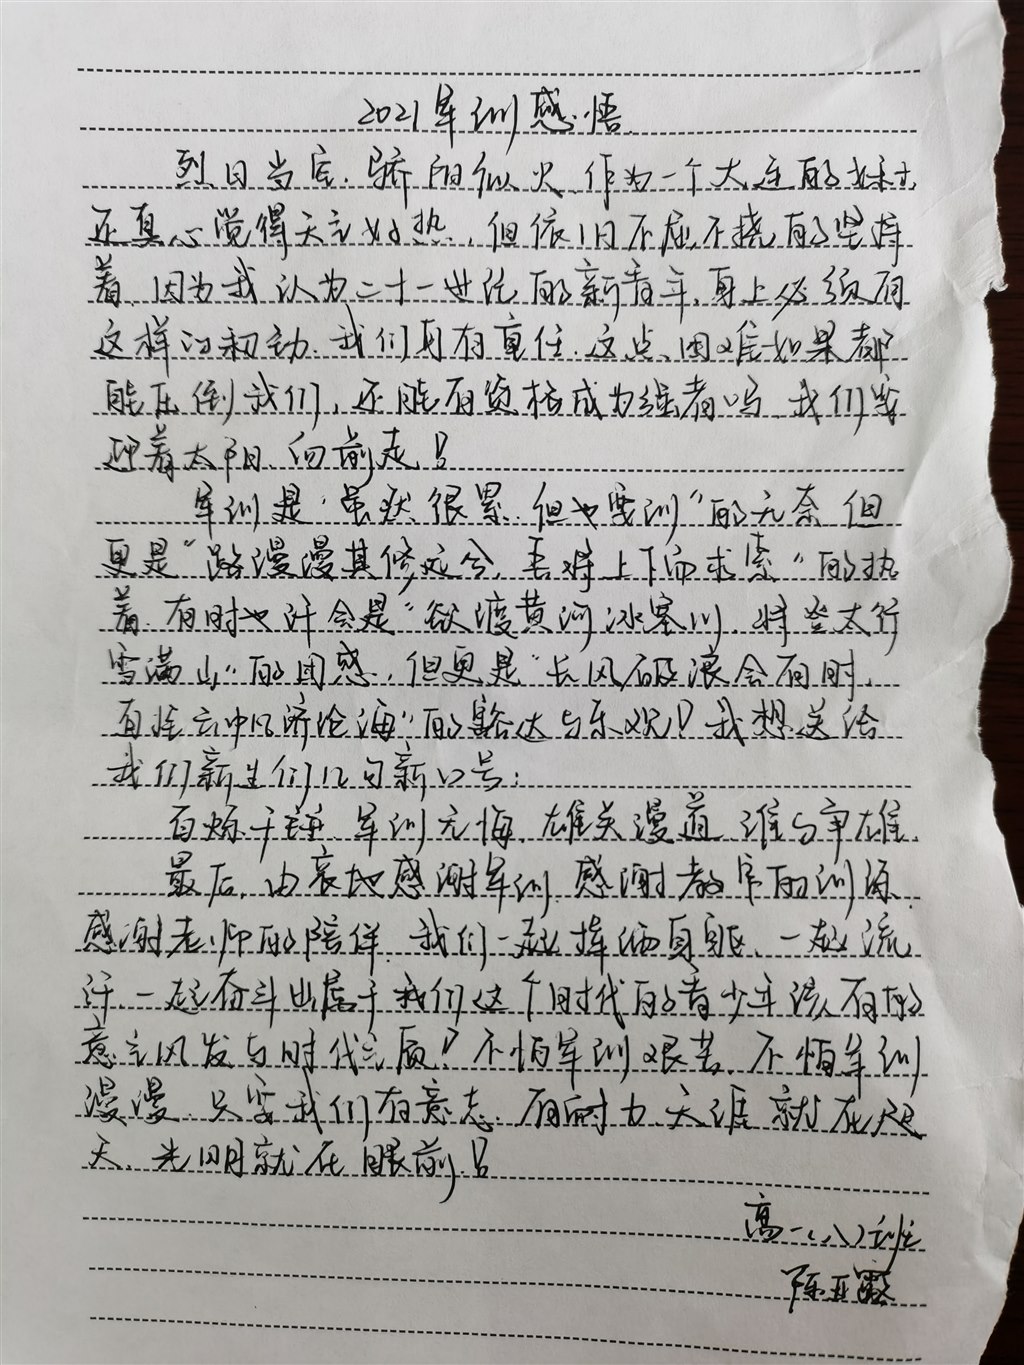 2021军训感悟
烈日当空,骄阳似火,作为一个大连的妹士,
还真心觉得天亢好热,但依旧不屈不挠的坚持
着,因为我认为二十一世纪的新青年,身上必须有
这样的韧劲,我们身有重任,这点困难如果都
能压倒我们,还能有资格成为继者吗,我们要
迎着太阳,向前走!
军训是“虽然很累,但也要训”的无奈,但
更是“路漫漫其修远兮,吾将上下而求索”的执
着,有时也许会是“欲渡黄河冰塞川,将登太行
雪满山”的困惑,但更是“长风破浪会有时,
直挂云帆济沧海”的豁达与乐观!我想送给
我们新生们几句新口号:
百炼千锤,军训无悔,雄关漫道,谁与争雄,
最后,由衷地感谢军训,感谢教官的训练,
感谢老师的陪伴,我们一起挥洒身躯,一起流
汗,一起奋斗出属于我们这个时代的青少年该有的
意气风发与时代气质!不怕军训艰苦,不怕军训
漫漫,只要我们有意志,有耐力,天涯就在咫
天,光明就在眼前!
高一(八)班
陈亚